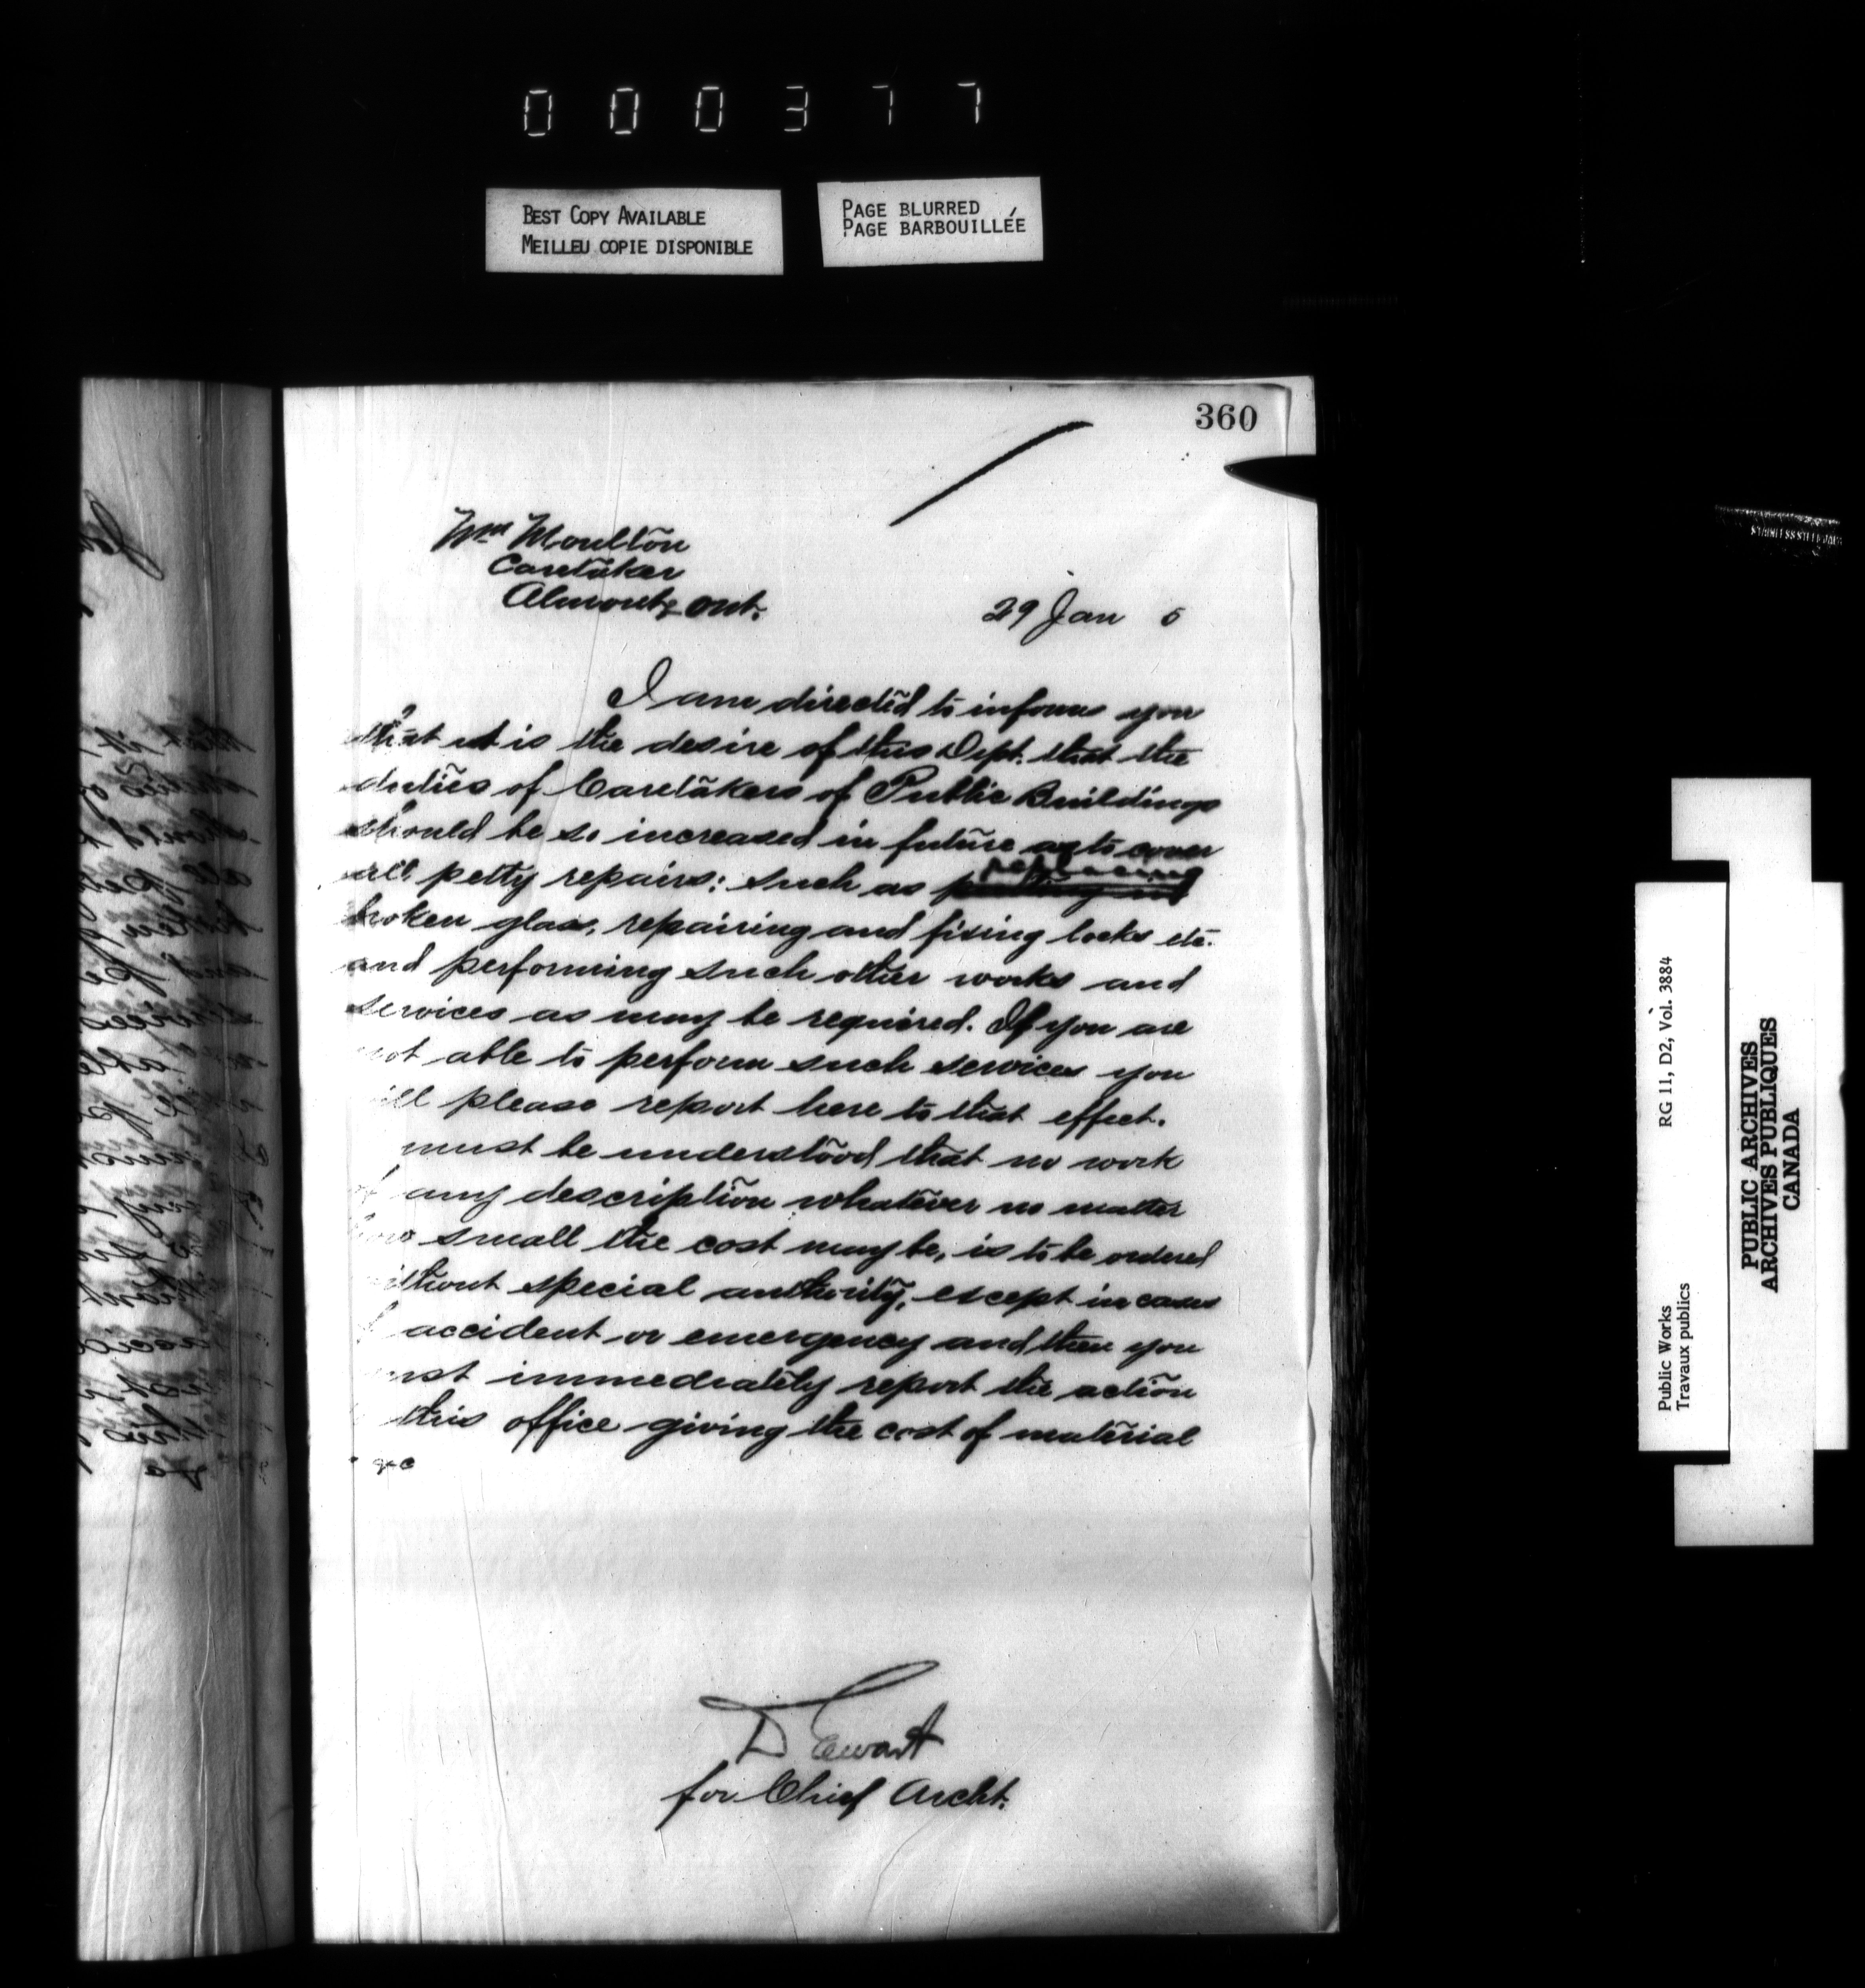 000377
BEST COPY AVAILABLE
MEILLEU COPIE DISPONIBLE
PAGE BLURRED
PAGE BARBOUILLÉE
360
Wm Moulton
Caretaker
Almonte Ont.
29 Jan 5
I am directed to inform you
that it is the desire of this Dept. that the
duties of Caretakers of Public Buildings
should be so increased in future as to cover
all petty repairs: such as replacing
broken glass, repairing and fixing locks etc.
and performing such other works and
services as may be required. If you are
not able to perform such services you
ill please report here to that effect.
must be understood that no work
of any description whatever no matter
how small the cost may be, is to be ordered
ithout special authority, except in cases
accident or emergency and then you
ust immediately report the action
this office giving the cost of material
&c
D Ewart
for Chief Archt.
RG 11, D2, Vol. 3884
Public Works
Travaux publics
PUBLIC ARCHIVES
ARCHIVES PUBLIQUES
CANADA